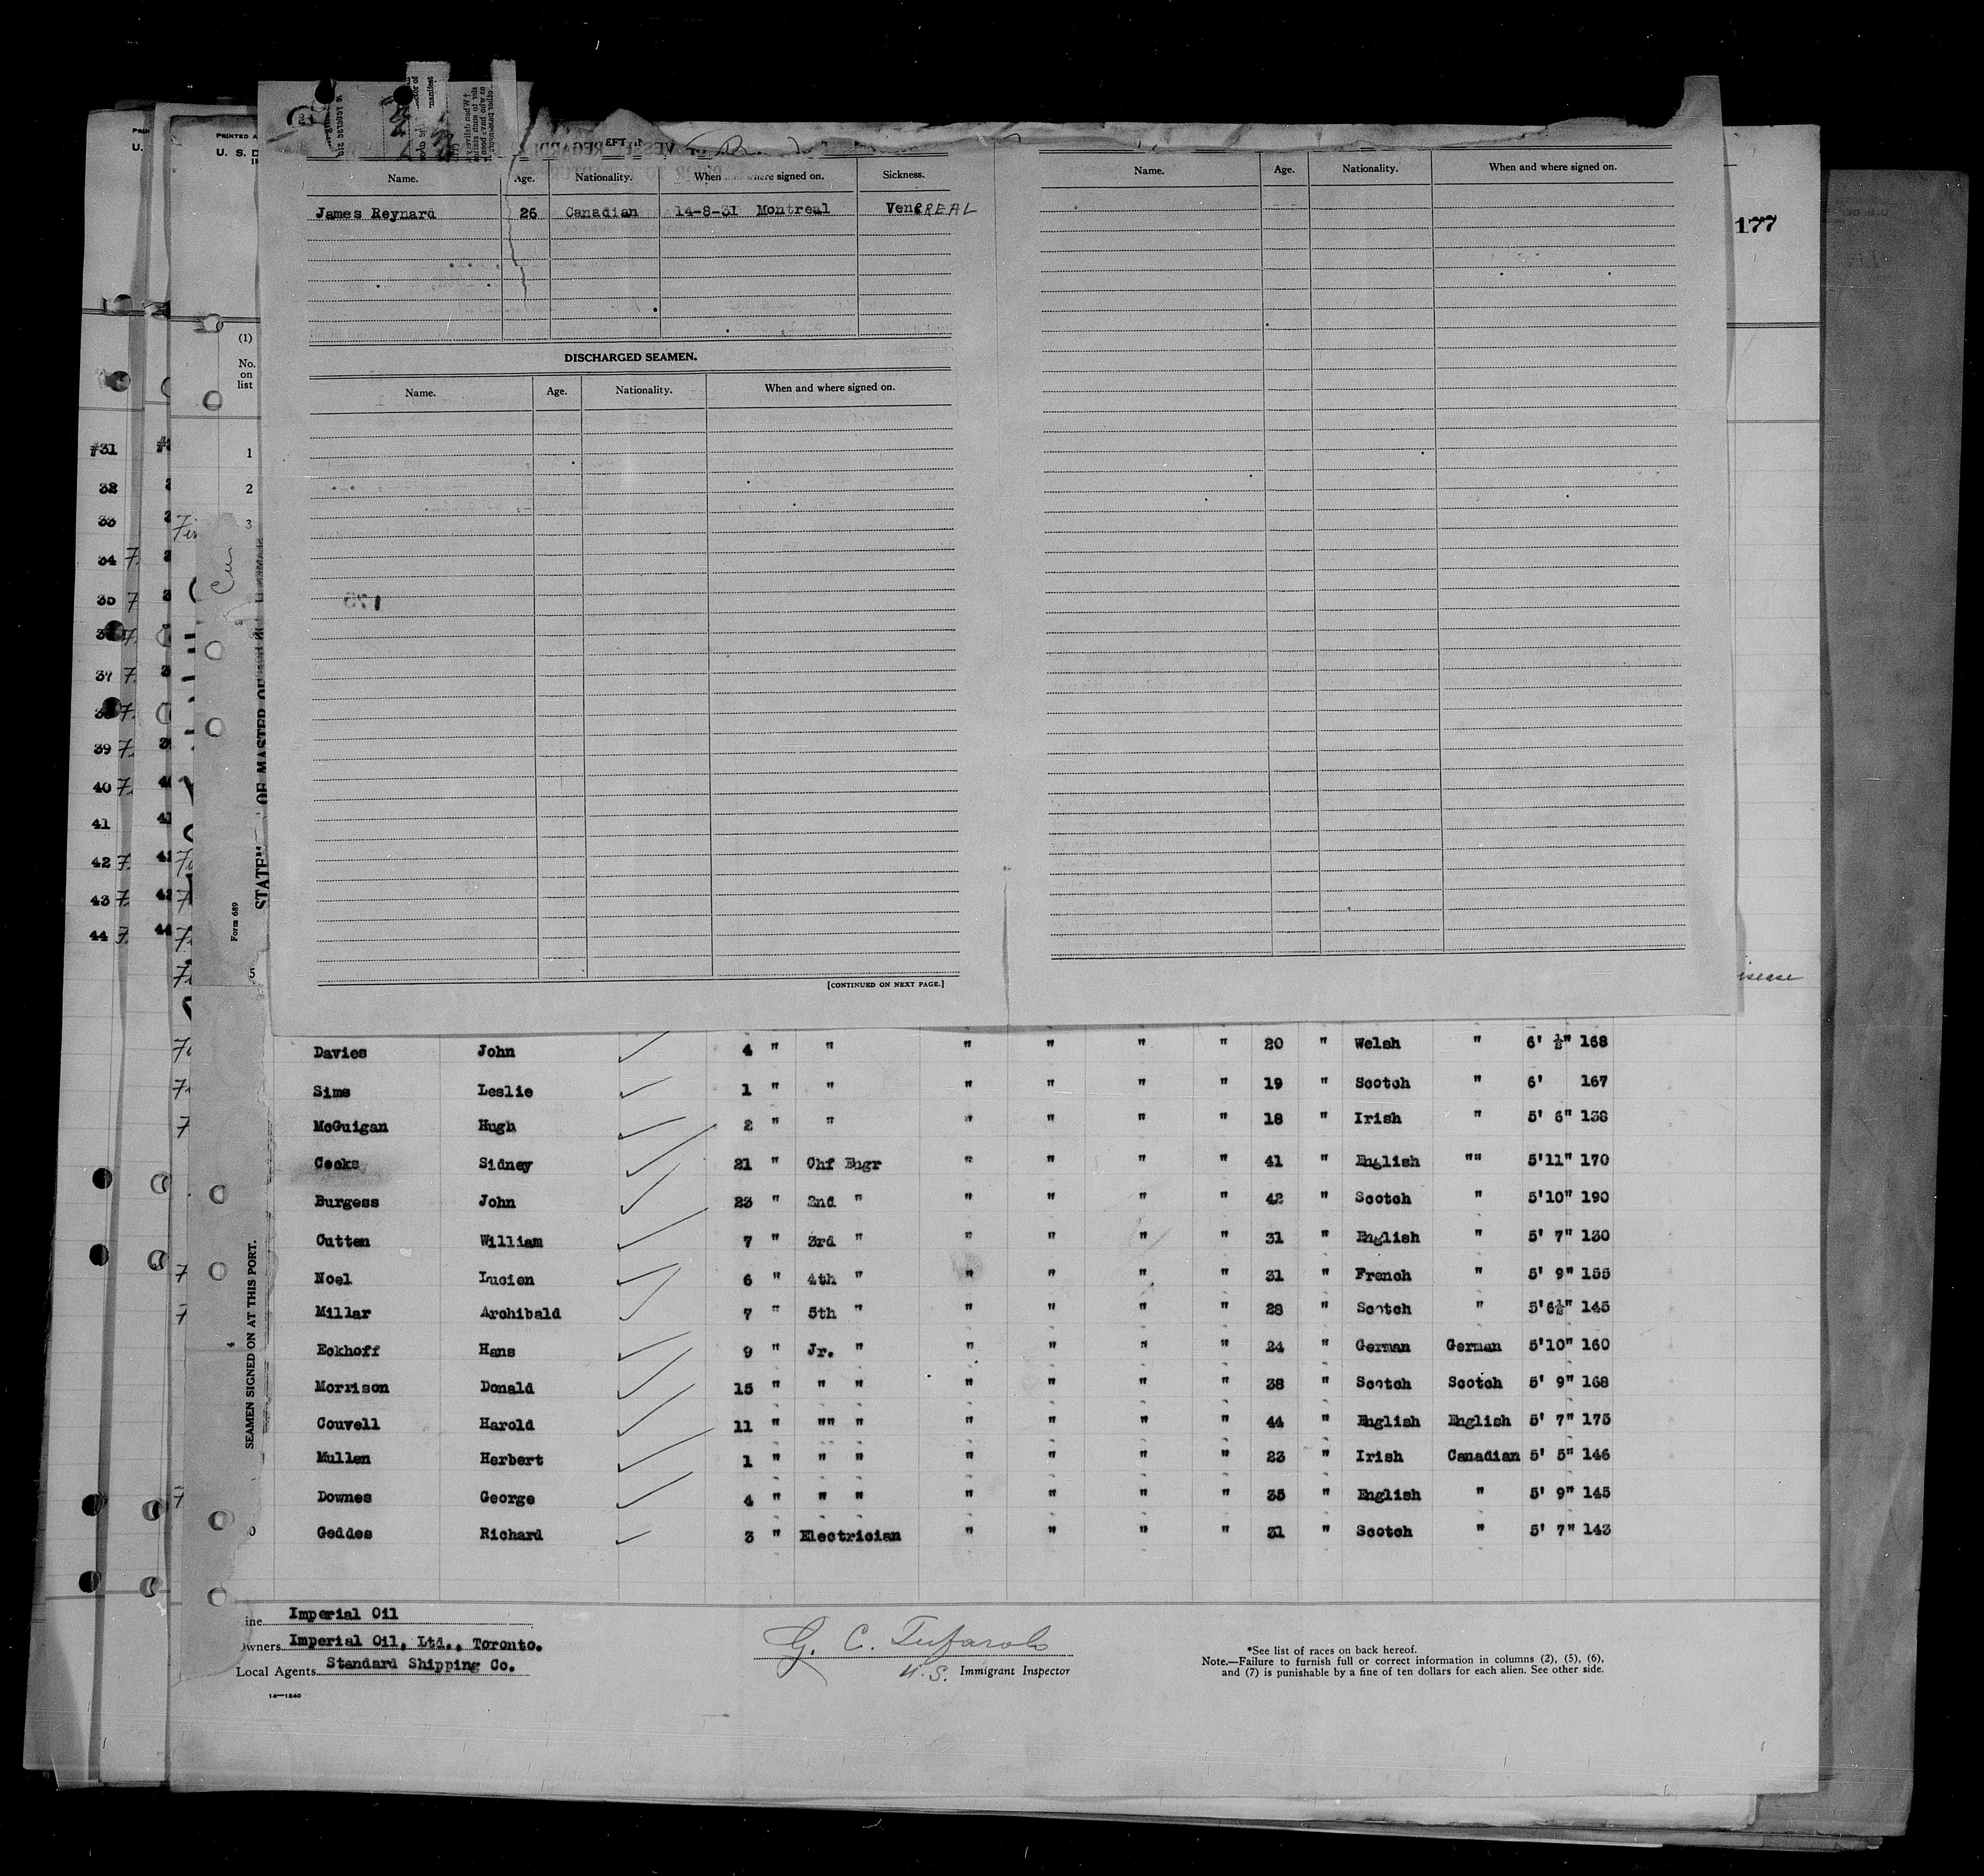 Name. Age. Nationality. When where signed on. Sickness.
James Reynard 26 Canadian 14-8-31 Montreal VeneREAL
DISCHARGED SEAMEN.
Name. Age. Nationality. When and where signed on.
[CONTINUED ON NEXT PAGE.]
Name. Age. Nationality. When and where signed on.
177
PRINTED
U. S. D
(1)
No.
on
list
1
2
3
#31
32
33
34 7.
35 7
37 7.
39 7.
40 7.
41
42 7.
43 7.
44 7.
Form 689
OF MASTER OF
SEAMEN SIGNED ON AT THIS PORT.
4
isease
Davies John 4 " " " " " " 20 " Welsh " 6' ½" 168
Sims Leslie 1 " " " " " " 19 " Scotch " 6' 167
McGuigan Hugh 2 " " " " " " 18 " Irish " 5' 6" 138
Cooks Sidney 21 " Chf Engr " " " " 41 " English "" 5'11" 170
Burgess John 23 " 2nd " " " " " 42 " Scotch " 5'10" 190
Cutten William 7 " 3rd " " " " " 31 " English " 5' 7" 130
Noel Lucien 6 " 4th " " " " " 31 " French " 5' 9" 155
Millar Archibald 7 " 5th " " " " " 28 " Scotch " 5'6½" 145
Eckhoff Hans 9 " Jr. " " " " " 24 " German German 5'10" 160
Morrison Donald 15 " " " " " " " 38 " Scotch Scotch 5' 9" 168
Couvell Harold 11 " "" " " " " " 44 " English English 5' 7" 175
Mullen Herbert 1 " " " " " " " 23 " Irish Canadian 5' 5" 146
Downes George 4 " " " " " " " 35 " English " 5' 9" 145
Geddes Richard 3 " Electrician " " " " 31 " Scotch " 5' 7" 143
ine Imperial Oil
wners Imperial Oil, Ltd., Toronto.
Local Agents Standard Shipping Co.
14—1240
G. C. Tufarolo
U.S. Immigrant Inspector
*See list of races on back hereof.
Note.—Failure to furnish full or correct information in columns (2), (5), (6),
and (7) is punishable by a fine of ten dollars for each alien. See other side.